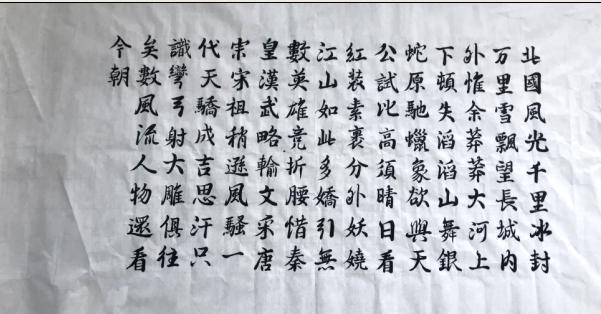 北國風光千里冰封
万里雪飄望長城内
外惟余莽莽大河上
下頓失滔滔山舞銀
蛇原馳蠟象欲與天
公試比高須晴日看
紅装素裹分外妖嬈
江山如此多嬌引無
數英雄竞折腰惜秦
皇漢武略輸文采唐
宗宋祖稍遜風騷一
代天驕成吉思汗只
識彎弓射大雕俱往
矣數風流人物還看
今朝